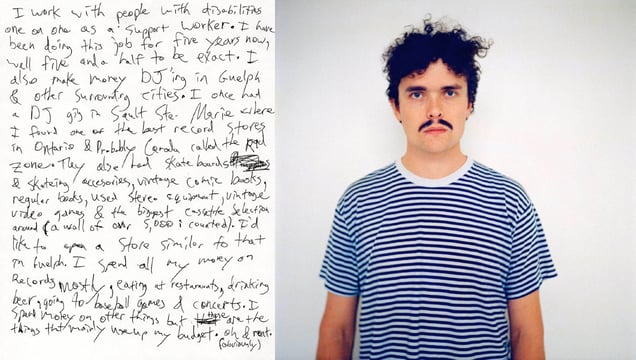 I work with people with disabilities
one on one as a support worker. I have
been doing this job for five years now,
well five and a half to be exact. I
also make money DJ'ing in Guelph
& other surrounding cities. I once had
a DJ gig in Sault Ste. Marie where
I found one of the best record stores
in Ontario & Probably Canada called the Red
zone. They also had skateboards
& skateing accesories, vintage comic books,
regular books, used stereo equipment, vintage
video games & the biggest cassette selection
around (a wall of over 5,000 i counted). I'd
like to open a store similar to that
in Guelph. I spend all my money on
Records mostly, eating at restaurants, drinking
beer, going to baseball games & concerts. I
spend money on other things but those are the
things that mainly use up my budget. oh & rent.
(obviously)